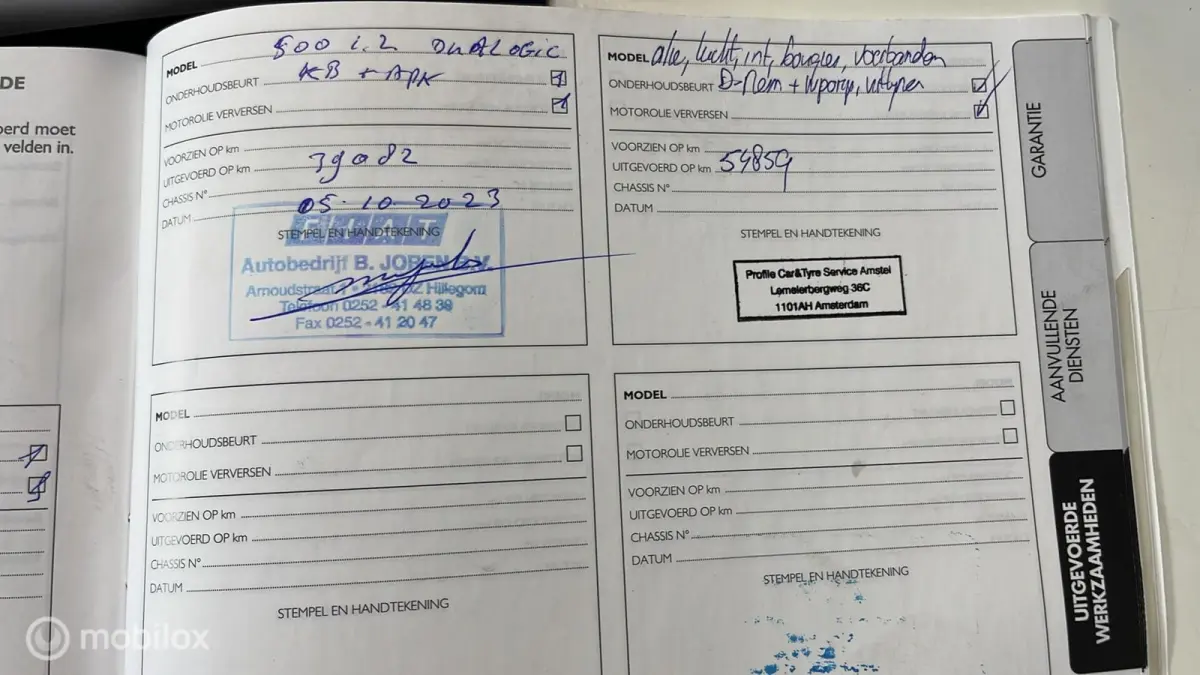 DE
oerd moet
velden in.
MODEL 500 1.2 DUALOGIC
ONDERHOUDSBEURT KB + APK
MOTOROLIE VERVERSEN
VOORZIEN OP km
UITGEVOERD OP km 39082
CHASSIS N°
DATUM 05.10.2023
STEMPEL EN HANDTEKENING
FIAT
Autobedrijf B. JOREN B.V.
Hillegom
Telefoon 0252 - 41 48 39
Fax 0252 - 41 20 47
MODEL olie, lucht, int, bougies, voorbanden
ONDERHOUDSBEURT D-Rem + uitlijnen
MOTOROLIE VERVERSEN
VOORZIEN OP km
UITGEVOERD OP km 54859
CHASSIS N°
DATUM
STEMPEL EN HANDTEKENING
Profile Car&Tyre Service Amstel
Lemelerbergweg 36C
1101AH Amsterdam
MODEL
ONDERHOUDSBEURT
MOTOROLIE VERVERSEN
VOORZIEN OP km
UITGEVOERD OP km
CHASSIS N°
DATUM
STEMPEL EN HANDTEKENING
MODEL
ONDERHOUDSBEURT
MOTOROLIE VERVERSEN
VOORZIEN OP km
UITGEVOERD OP km
CHASSIS N°
DATUM
STEMPEL EN HANDTEKENING
GARANTIE
AANVULLENDE
DIENSTEN
UITGEVOERDE
WERKZAAMHEDEN
mobilox